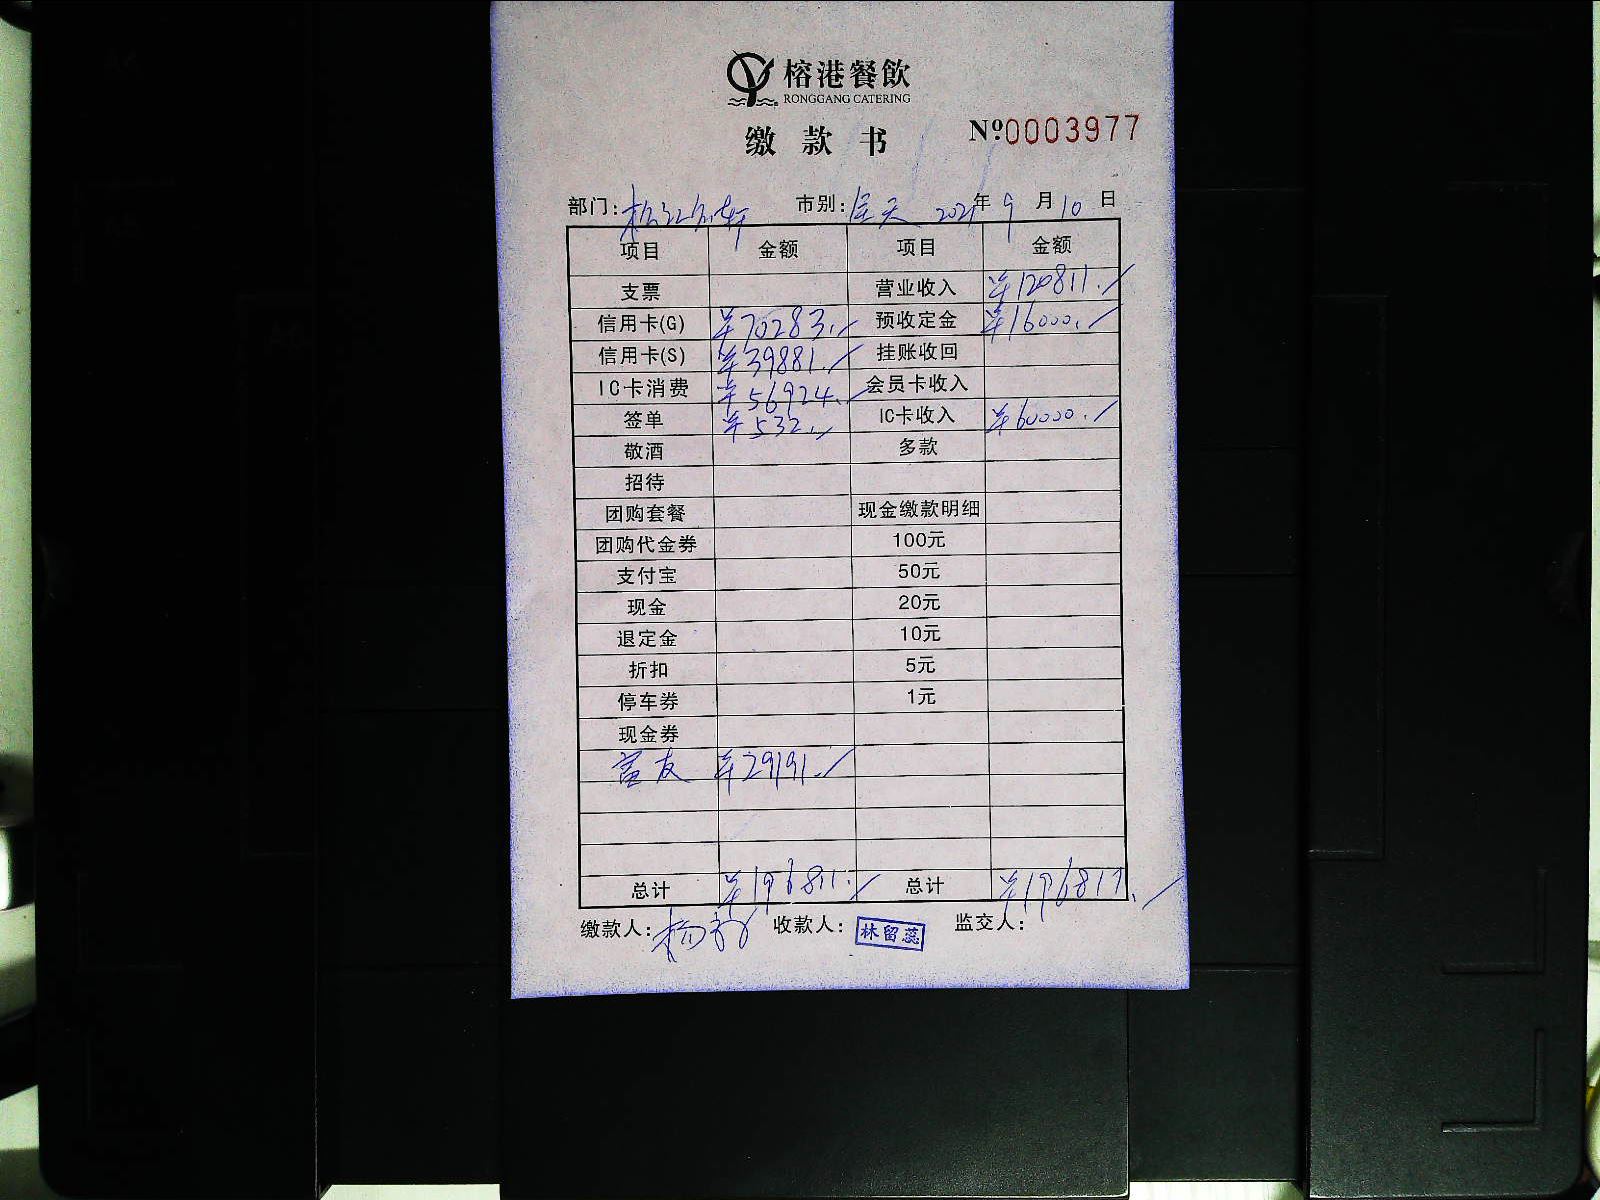 榕港餐飲
RONGGANG CATERING
缴款书 Nº0003977
部门: 市别:全天 2021年9月10日
项目 金额 项目 金额
支票 营业收入 ¥120811.
信用卡(G) ¥70283. 预收定金 ¥16000.
信用卡(S) ¥39881. 挂账收回
IC卡消费 ¥56924. 会员卡收入
签单 ¥532. IC卡收入 ¥60000.
敬酒 多款
招待
团购套餐 现金缴款明细
团购代金券 100元
支付宝 50元
现金 20元
退定金 10元
折扣 5元
停车券 1元
现金券
富友 ¥29191.
总计 ¥196811. 总计 ¥196811.
缴款人:杨 收款人:林留蕊 监交人: